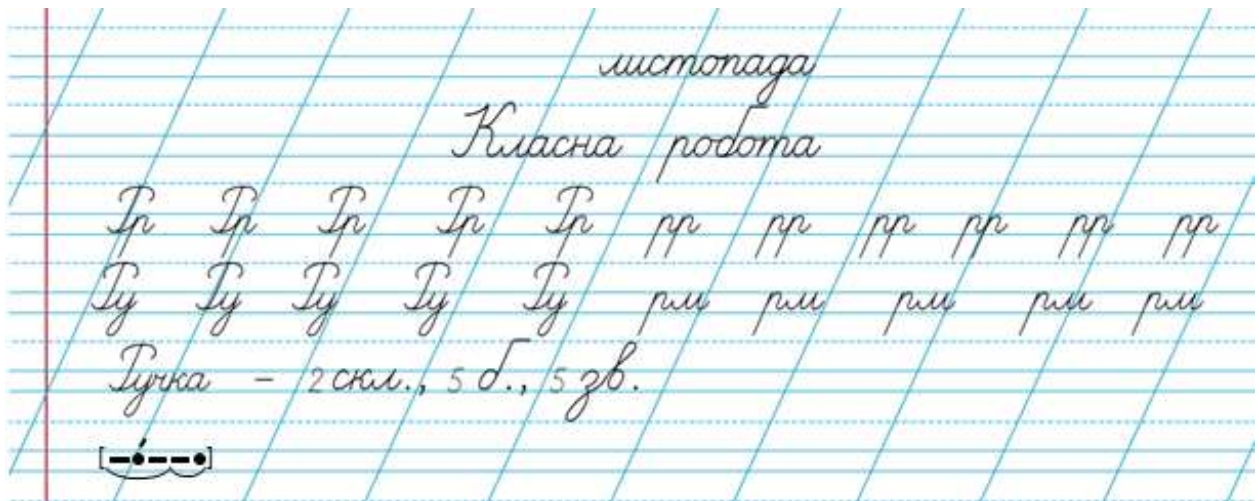 листопада
Класна робота
Рр Рр Рр Рр Рр рр рр рр рр рр рр
Ру Ру Ру Ру Ру рм рм рм рм рм
Ручка - 2 скл., 5 б., 5 зв.